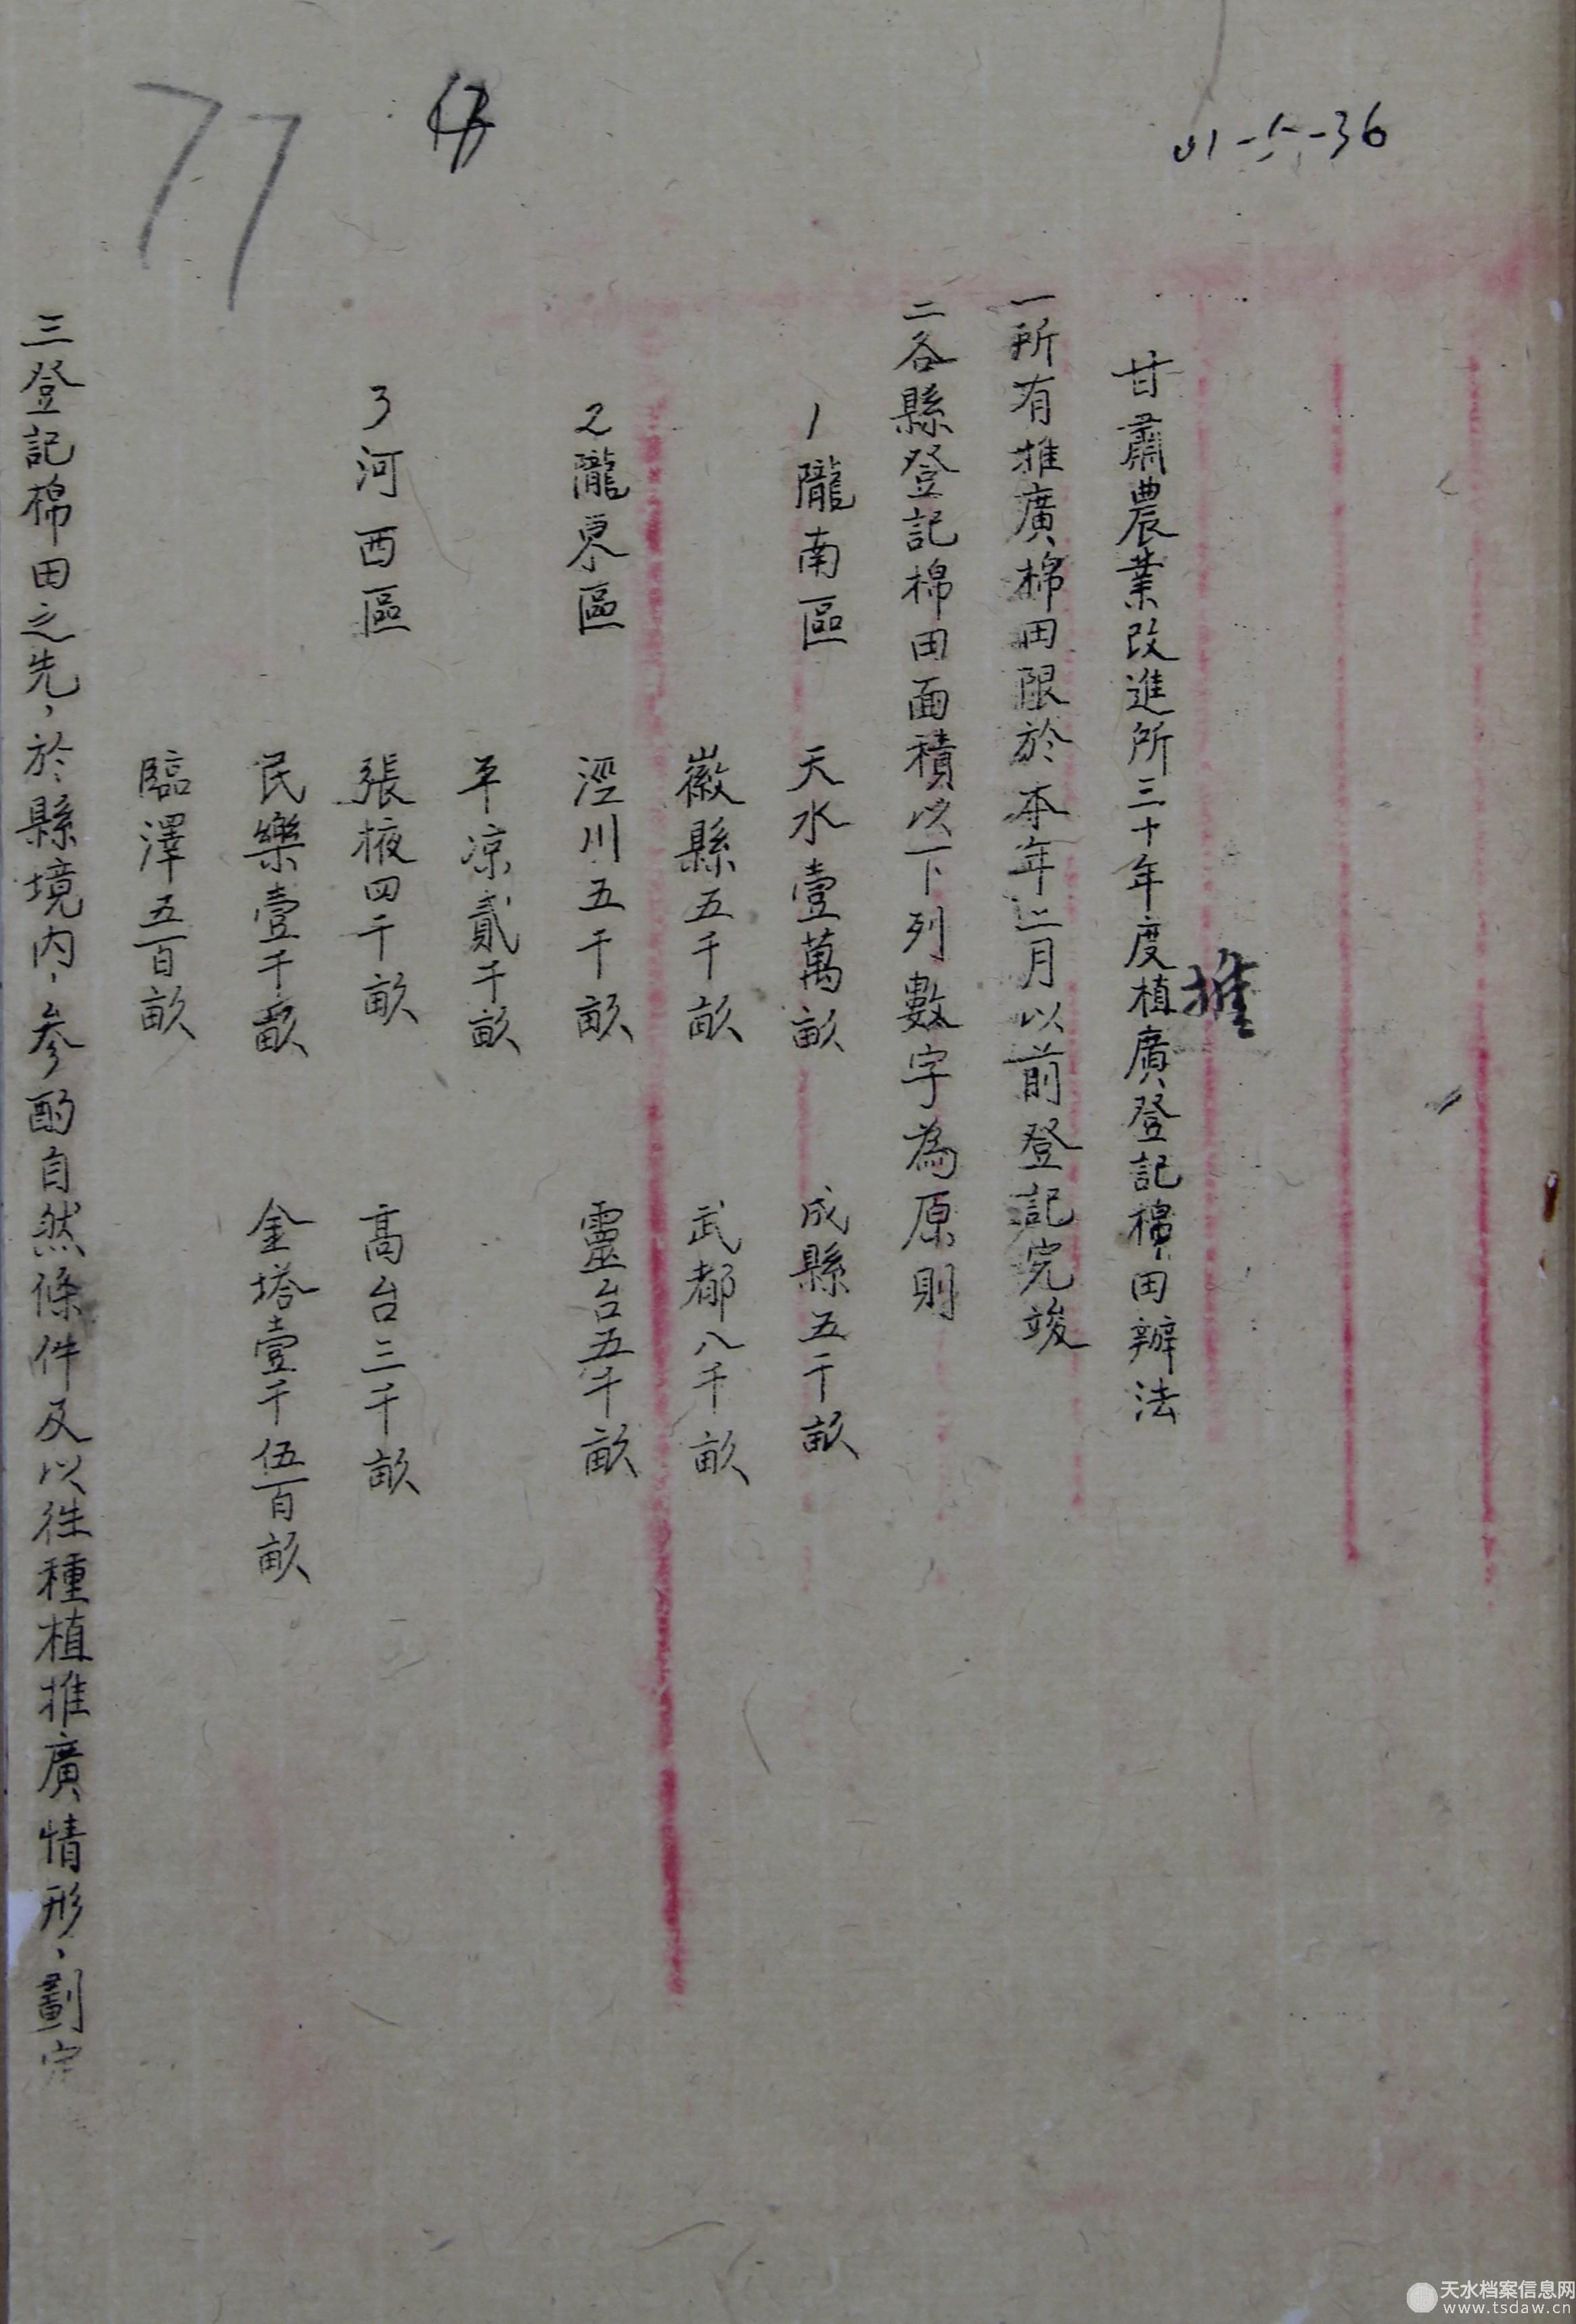 01-5-36
推
甘肅農業改進所三十年度植廣登記棉田辦法
一所有推廣棉田限於本年三月以前登記完竣
二各縣登記棉田面積以下列數字為原則
1隴南區 天水壹萬畝 成縣五千畝
徽縣五千畝 武都八千畝
2隴東區 涇川五千畝 靈台五千畝
平凉貳千畝
3河西區 張掖四千畝 高台三千畝
民樂壹千畝 金塔壹千伍百畝
臨澤五百畝
三登記棉田之先，於縣境內，參酌自然條件及以往種植推廣情形，劃定
77
天水档案信息网
www.tsdaw.cn